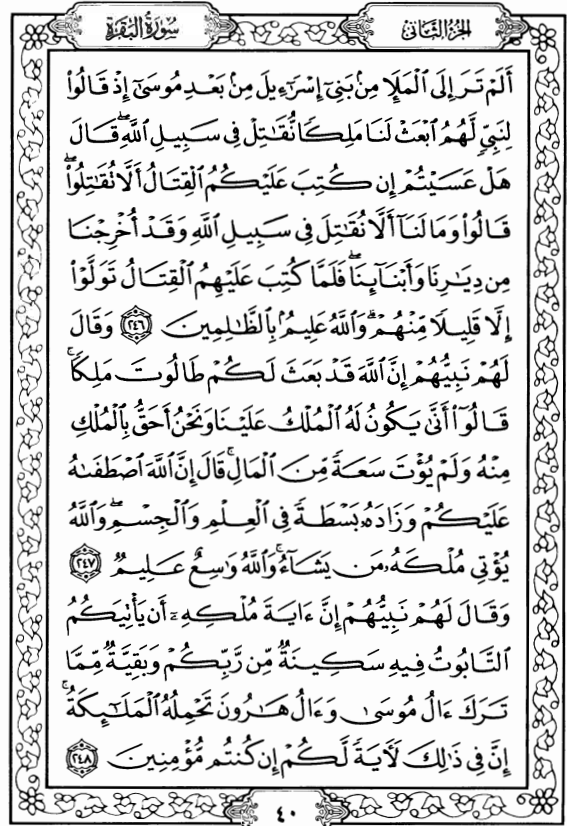 الجزء الثاني
سورة البقرة
أَلَمْ تَرَ إِلَى ٱلْمَلَإِ مِنۢ بَنِىٓ إِسْرَٰٓءِيلَ مِنۢ بَعْدِ مُوسَىٰٓ إِذْ قَالُوا۟
لِنَبِىٍّ لَّهُمُ ٱبْعَثْ لَنَا مَلِكًا نُّقَـٰتِلْ فِى سَبِيلِ ٱللَّهِ ۖ قَالَ
هَلْ عَسَيْتُمْ إِن كُتِبَ عَلَيْكُمُ ٱلْقِتَالُ أَلَّا تُقَـٰتِلُوا۟ ۖ
قَالُوا۟ وَمَا لَنَآ أَلَّا نُقَـٰتِلَ فِى سَبِيلِ ٱللَّهِ وَقَدْ أُخْرِجْنَا
مِن دِيَـٰرِنَا وَأَبْنَآئِنَا ۖ فَلَمَّا كُتِبَ عَلَيْهِمُ ٱلْقِتَالُ تَوَلَّوْا۟
إِلَّا قَلِيلًا مِّنْهُمْ ۗ وَٱللَّهُ عَلِيمٌۢ بِٱلظَّـٰلِمِينَ ٢٤٦ وَقَالَ
لَهُمْ نَبِيُّهُمْ إِنَّ ٱللَّهَ قَدْ بَعَثَ لَكُمْ طَالُوتَ مَلِكًا ۚ
قَالُوٓا۟ أَنَّىٰ يَكُونُ لَهُ ٱلْمُلْكُ عَلَيْنَا وَنَحْنُ أَحَقُّ بِٱلْمُلْكِ
مِنْهُ وَلَمْ يُؤْتَ سَعَةً مِّنَ ٱلْمَالِ ۚ قَالَ إِنَّ ٱللَّهَ ٱصْطَفَىٰهُ
عَلَيْكُمْ وَزَادَهُۥ بَسْطَةً فِى ٱلْعِلْمِ وَٱلْجِسْمِ ۖ وَٱللَّهُ
يُؤْتِى مُلْكَهُۥ مَن يَشَآءُ ۚ وَٱللَّهُ وَٰسِعٌ عَلِيمٌ ٢٤٧
وَقَالَ لَهُمْ نَبِيُّهُمْ إِنَّ ءَايَةَ مُلْكِهِۦٓ أَن يَأْتِيَكُمُ
ٱلتَّابُوتُ فِيهِ سَكِينَةٌ مِّن رَّبِّكُمْ وَبَقِيَّةٌ مِّمَّا
تَرَكَ ءَالُ مُوسَىٰ وَءَالُ هَـٰرُونَ تَحْمِلُهُ ٱلْمَلَـٰٓئِكَةُ ۚ
إِنَّ فِى ذَٰلِكَ لَـَٔايَةً لَّكُمْ إِن كُنتُم مُّؤْمِنِينَ ٢٤٨
٤٠